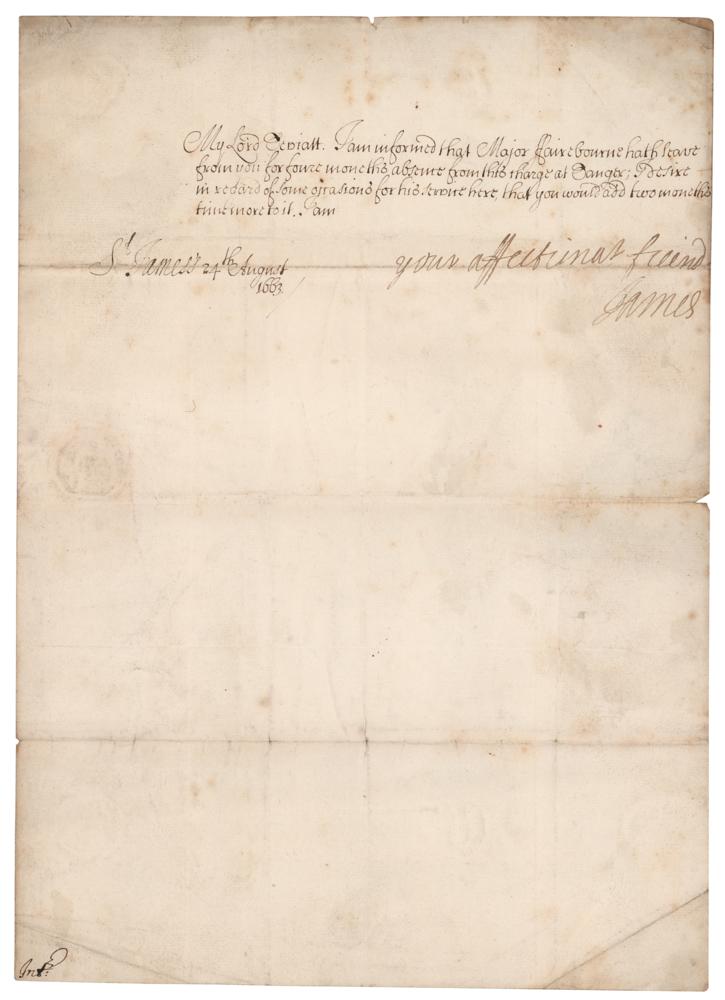 My Lord Teviatt. I am informed that Major ffairebourne hath leave
from you for foure moneths absence from his charge at Tanger; I desire
in regard of some occasions for his service here, that you would add two moneths
time more to it. I am
your affectionat freind
James
St. James's 24th August
1663.
Int: